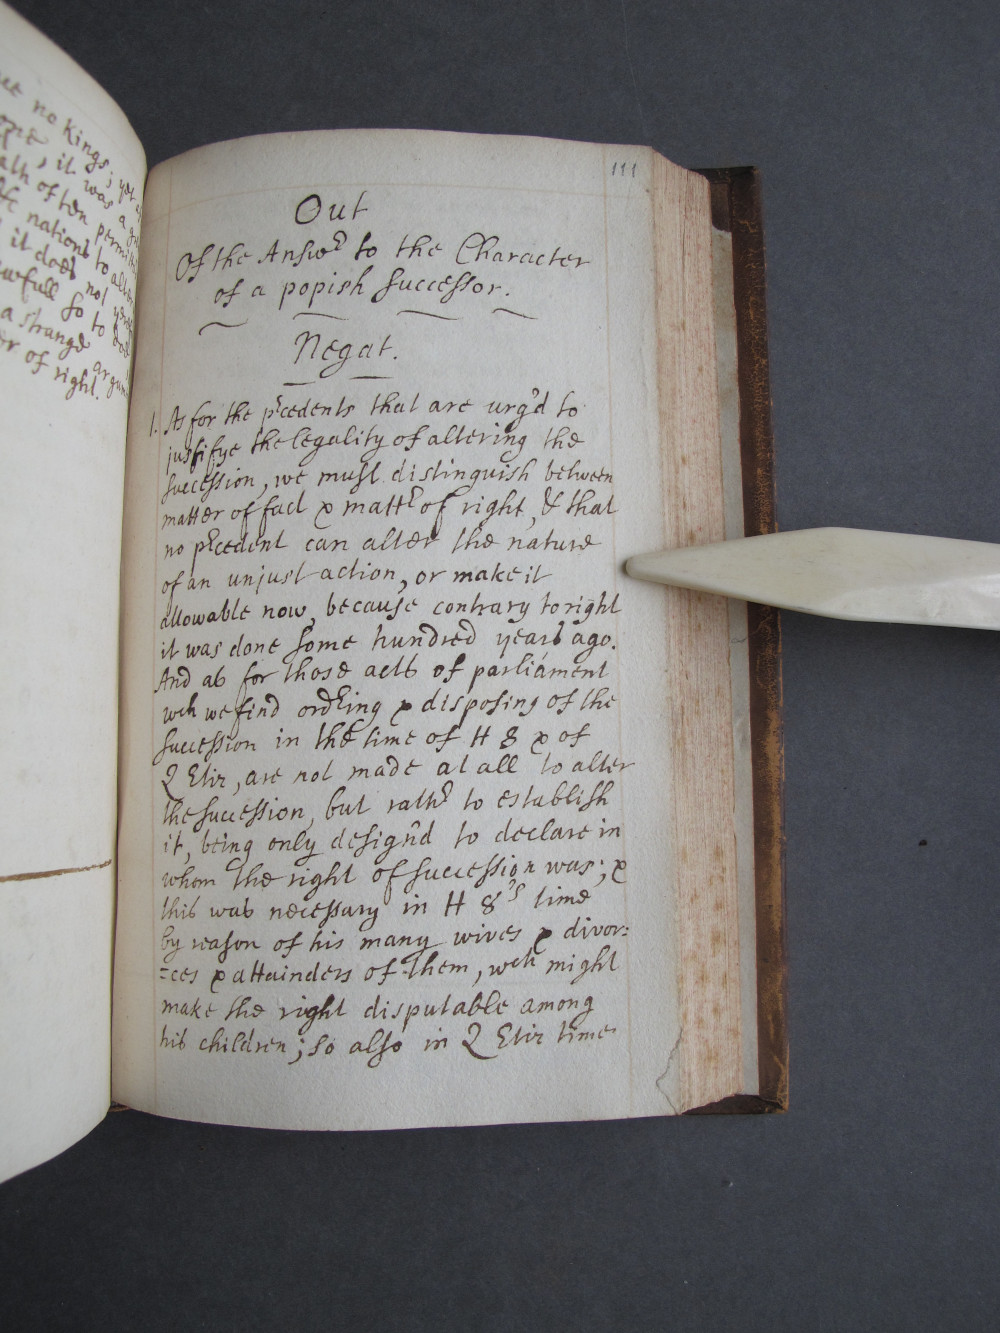 no Kings; yet
, it was a
oath often
nations to
it does not
full so to
a strange
of right.
111
Out
Of the Answr to the Character
of a popish successor.
Negat.
1. As for the prcedents that are urg'd to
justifye the legality of altering the
succession, we must distinguish between
matter of fact & mattr of right, & that
no prcedent can alter the nature
of an unjust action, or make it
allowable now, because contrary to right
it was done some hundred years ago.
And as for those acts of parliament
wch we find ordring & disposing of the
succession in the time of H 8 & of
Q Eliz, are not made at all to alter
the succession, but rathr to establish
it, being only design'd to declare in
whom the right of succession was; &
this was necessary in H 8's time
by reason of his many wives & divor:
:ces & attainders of them, wch might
make the right disputable among
his children; so also in Q Eliz time